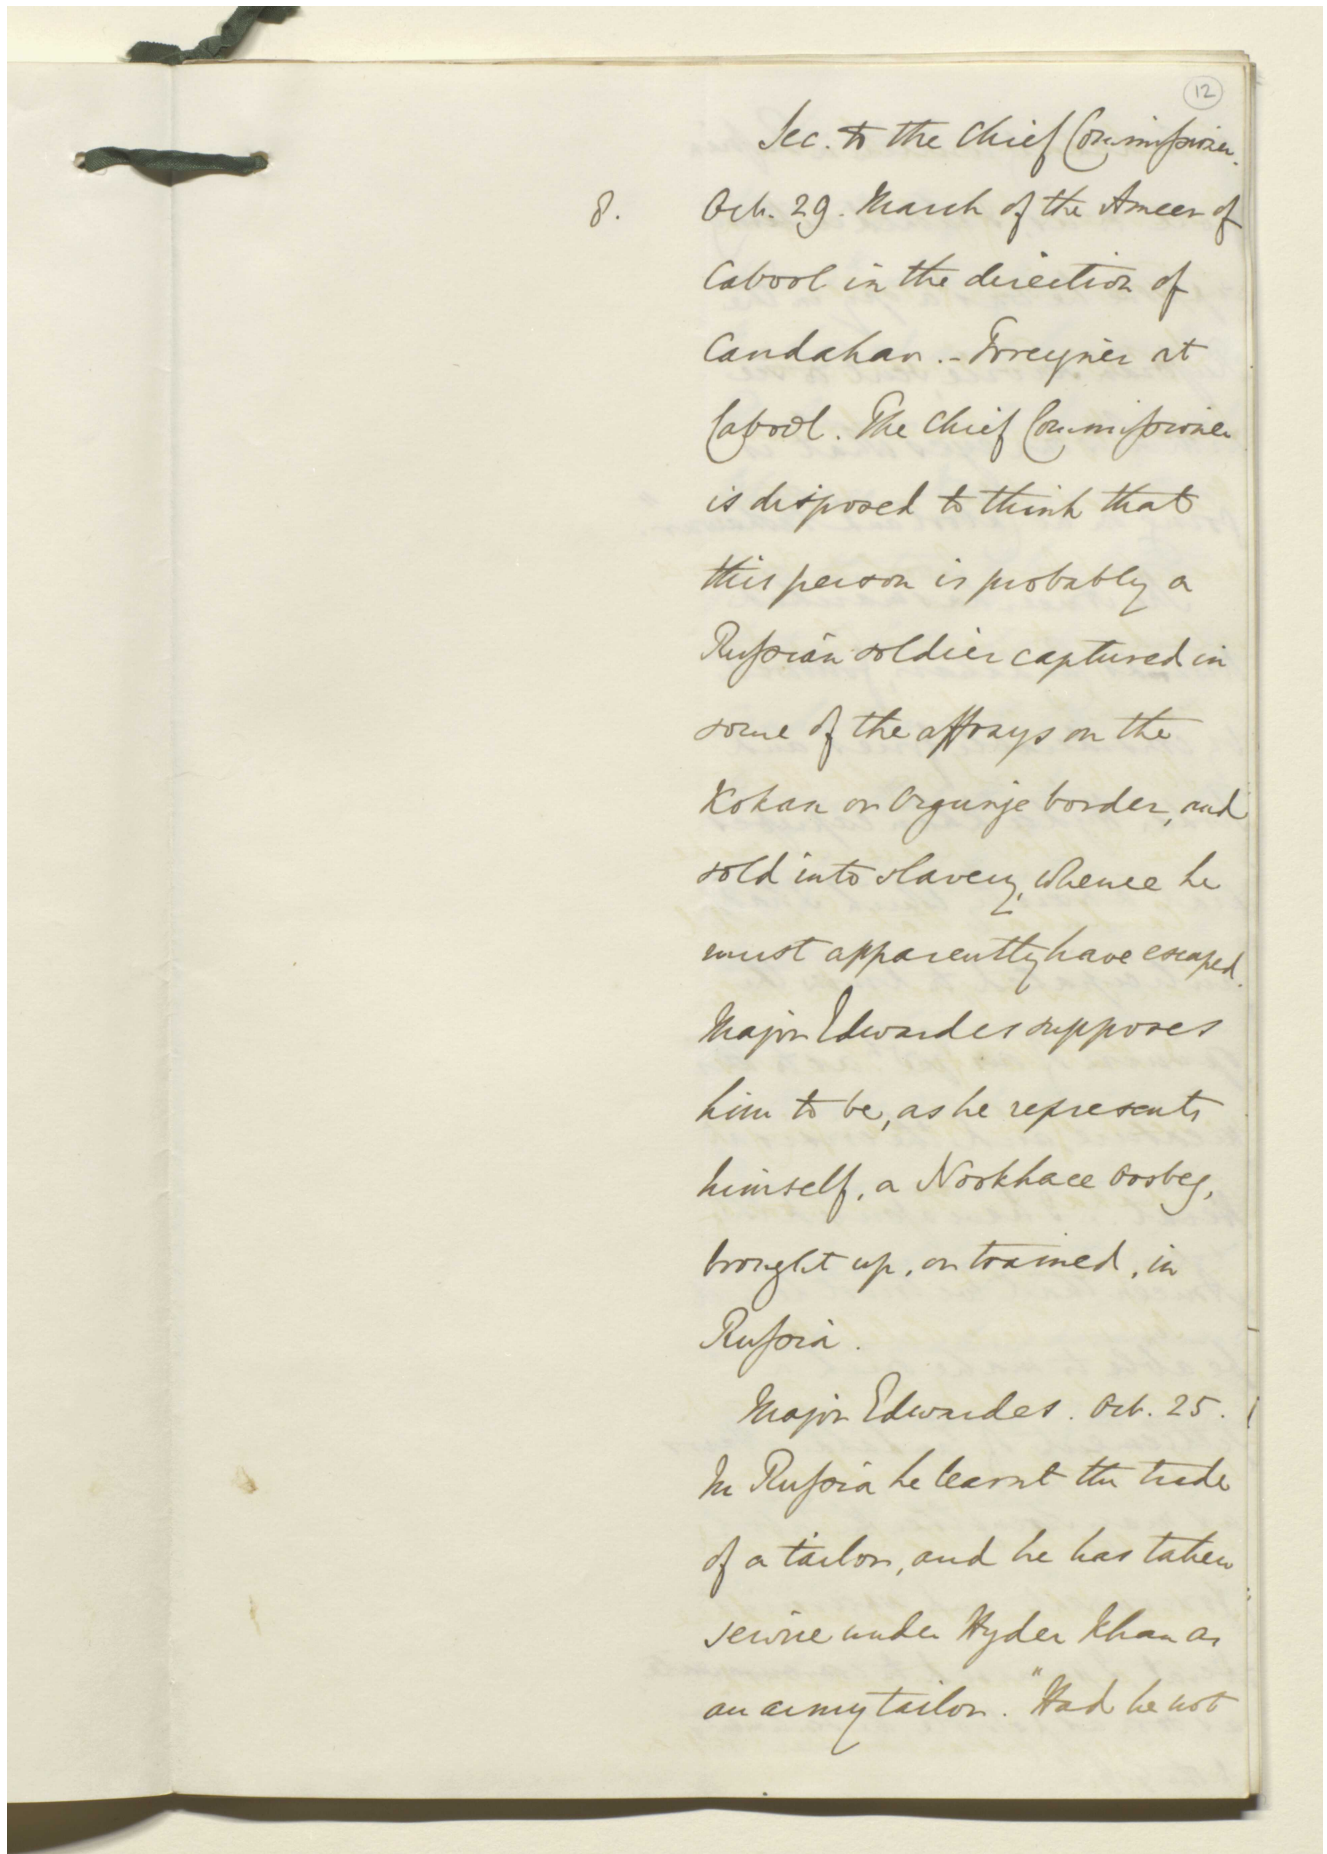 12
Sec. to the Chief Commissioner.
8. Oct. 29. March of the Ameer of
Cabool in the direction of
Candahar. - Foreigner at
Cabool. The Chief Commissioner
is disposed to think that
this person is probably a
Russian soldier captured in
some of the affrays on the
Kokan or Orgunje border, and
sold into slavery, whence he
must apparently have escaped.
Major Edwardes supposes
him to be, as he represents
himself, a Nookhaee Oosbeg,
brought up, or trained, in
Russia.
Major Edwardes. Oct. 25.
In Russia he learnt the trade
of a tailor, and he has taken
service under Hyder Khan as
an army tailor. "Had he not